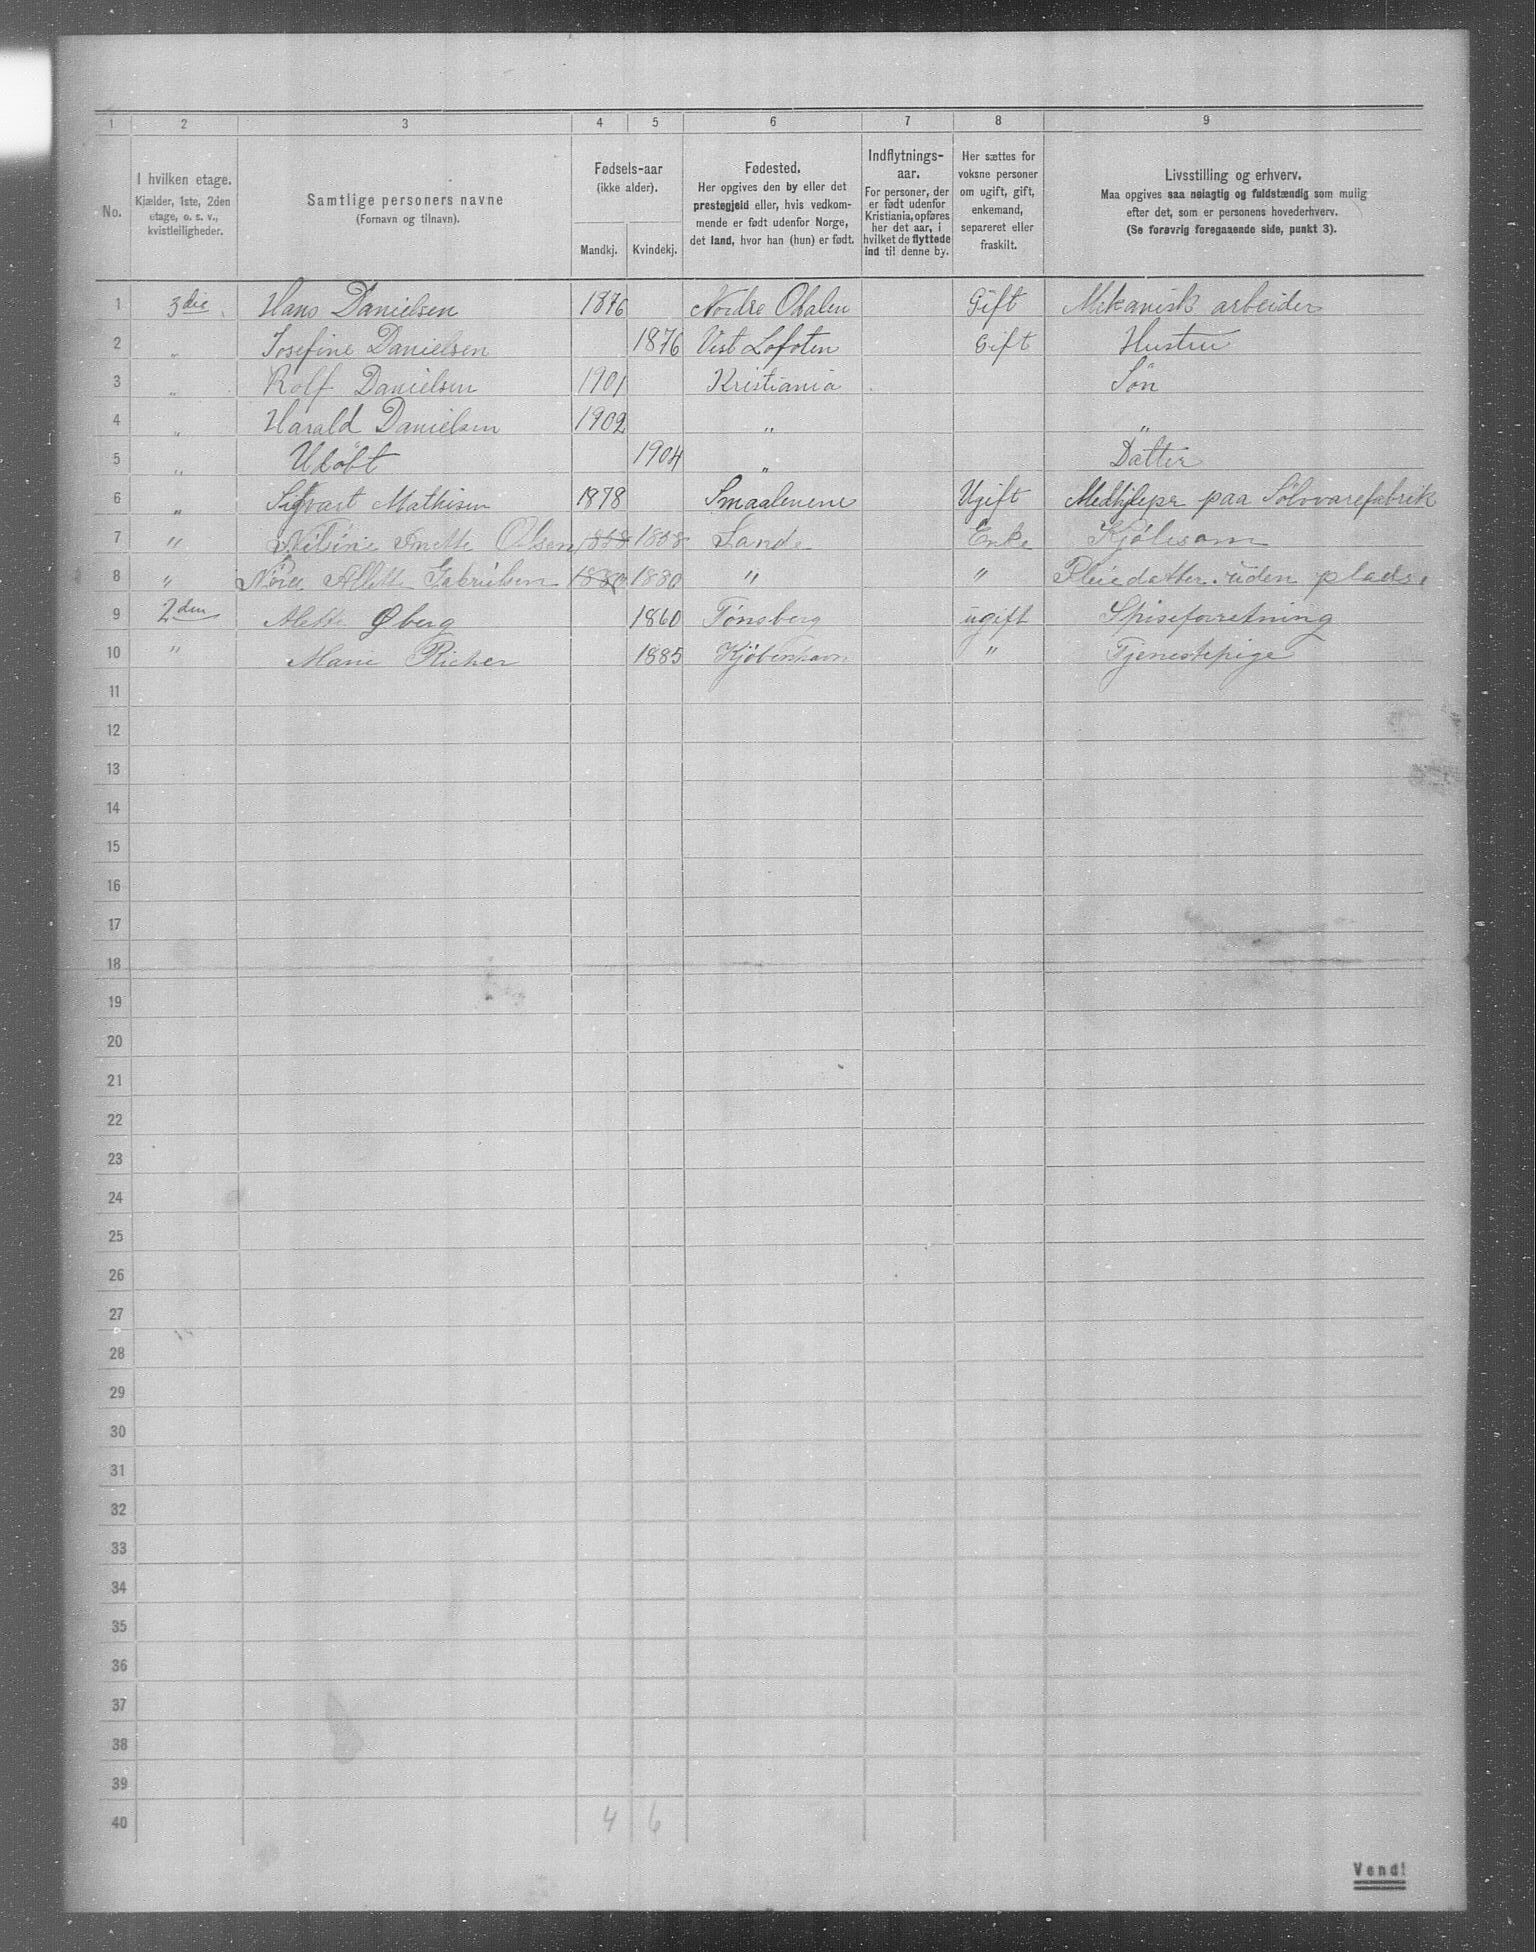 1 2 3 4 5 6 7 8 9
No.
I hvilken etage.
Kjælder, 1ste, 2den
etage, o. s. v.,
kvistleiligheder.
Samtlige personers navne
(Fornavn og tilnavn).
Fødsels-aar
(ikke alder).
Mandkj. Kvindekj.
Fødested.
Her opgives den by eller det
prestegjeld eller, hvis vedkom-
mende er født udenfor Norge,
det land, hvor han (hun) er født.
Indflytnings-
aar.
For personer, der
er født udenfor
Kristiania, opføres
her det aar, i
hvilket de flyttede
ind til denne by.
Her sættes for
voksne personer
om ugift, gift,
enkemand,
separeret eller
fraskilt.
Livsstilling og erhverv.
Maa opgives saa nøiagtig og fuldstændig som mulig
efter det, som er personens hovederhverv.
(Se forøvrig foregaaende side, punkt 3).
1 3die Hans Danielsen 1876 Nordre Odalen Gift Mekanisk arbeider
2 " Josefine Danielsen 1876 Vest Lofoten Gift Hustru
3 " Rolf Danielsen 1901 Kristiania Søn
4 " Harald Danielsen 1902 " "
5 " Udøbt 1904 " Datter
6 " Sigvart Mathisen 1878 Smaalenene Ugift Medhjelper paa Sølvvarefabrik
7 " Anette Olsen 1858 1858 Sande Enke
8 " Gabrielsen 1880 1880 " " Pleiedatter uden plads.
9 2den Alette Øberg 1860 Tønsberg ugift Spiseforretning
10 " Marie Richer 1885 Kjøbenhavn " Tjenestepige
11
12
13
14
15
16
17
18
19
20
21
22
23
24
25
26
27
28
29
30
31
32
33
34
35
36
37
38
39
40 4 6
Vend!